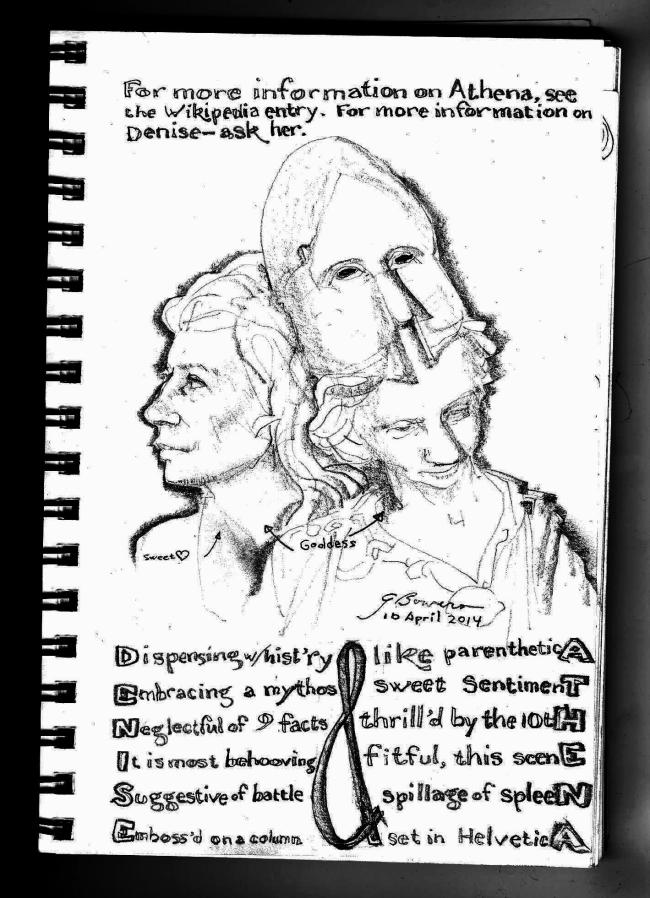 For more information on Athena, see
the Wikipedia entry. For more information on
Denise—ask her.
Sweet♡
Goddess
G. Bowers
16 April 2014
Dispensing w/hist'ry like parentheticA
Embracing a mythos sweet SentimenT
Neglectful of 9 facts thrill'd by the 10tH
It is most behooving & fitful, this scenE
Suggestive of battle spillage of spleeN
Emboss'd on a column set in HelveticA